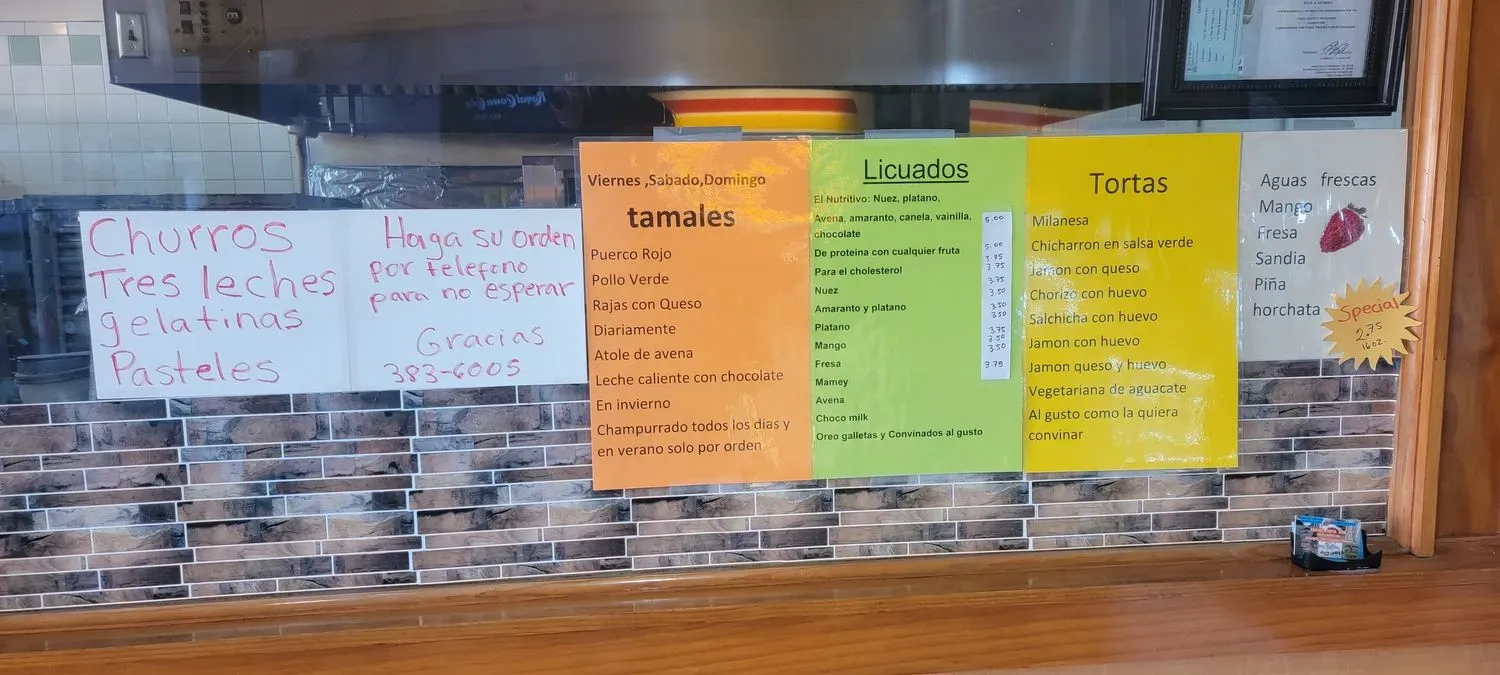 Churros
Tres leches
gelatinas
Pasteles
Haga su orden
por telefono
para no esperar
Gracias
383-6005
Viernes ,Sabado,Domingo
tamales
Puerco Rojo
Pollo Verde
Rajas con Queso
Diariamente
Atole de avena
Leche caliente con chocolate
En invierno
Champurrado todos los dias y
en verano solo por orden
Licuados
El Nutritivo: Nuez, platano,
Avena, amaranto, canela, vainilla,
chocolate
De proteina con cualquier fruta
Para el cholesterol
Nuez
Amaranto y platano
Platano
Mango
Fresa
Mamey
Avena
Choco milk
Oreo galletas y Convinados al gusto
5.00
5.00
3.75
3.75
3.75
3.50
3.50
3.50
3.75
3.50
3.50
3.75
Tortas
Milanesa
Chicharron en salsa verde
Jamon con queso
Chorizo con huevo
Salchicha con huevo
Jamon con huevo
Jamon queso y huevo
Vegetariana de aguacate
Al gusto como la quiera
convinar
Aguas frescas
Mango
Fresa
Sandia
Piña
horchata
Special
2.75
16oz.
Royal Crown Cola